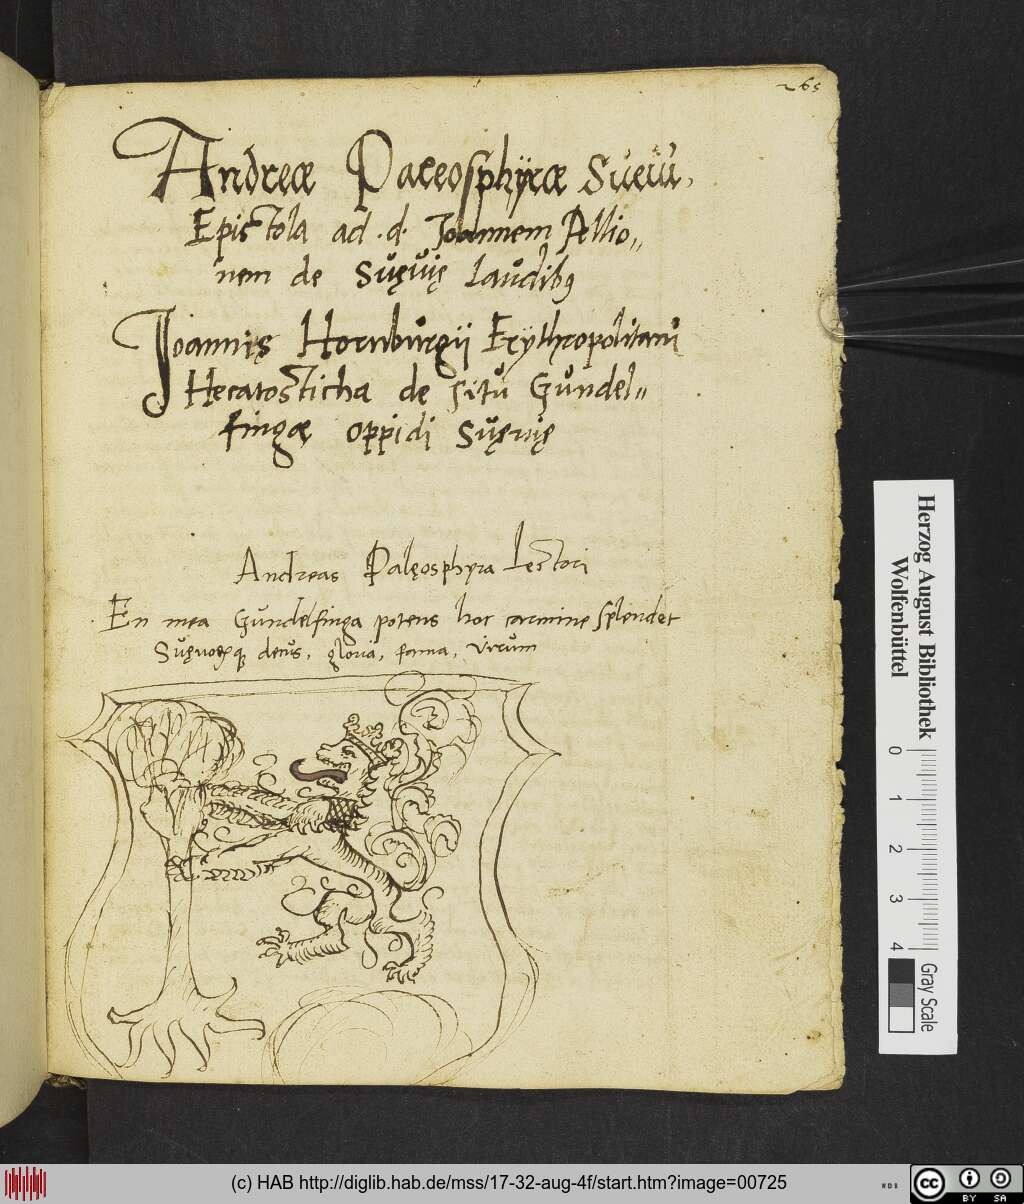 265
Andreæ Paleosphÿræ Sueui,
Epistola ad .d. Joannem Pellio„
nem de Sŭęŭię laŭdibꝫ
Joannis Hornbŭrgij Erythropolitani
Hecatosticha de sitŭ Gŭndel„
fingæ oppidi Sŭęŭię
Andreas Palęosphyra Lectori
En mea Gŭndelfinga potens hoc carmine splendet
Sŭęuoꝝque decŭs, gloria, fama, Virŭm
Herzog August Bibliothek
Wolfenbüttel
0 1 2 3 4
Gray Scale
(c) HAB http://diglib.hab.de/mss/17-32-aug-4f/start.htm?image=00725
WDB
cc BY SA